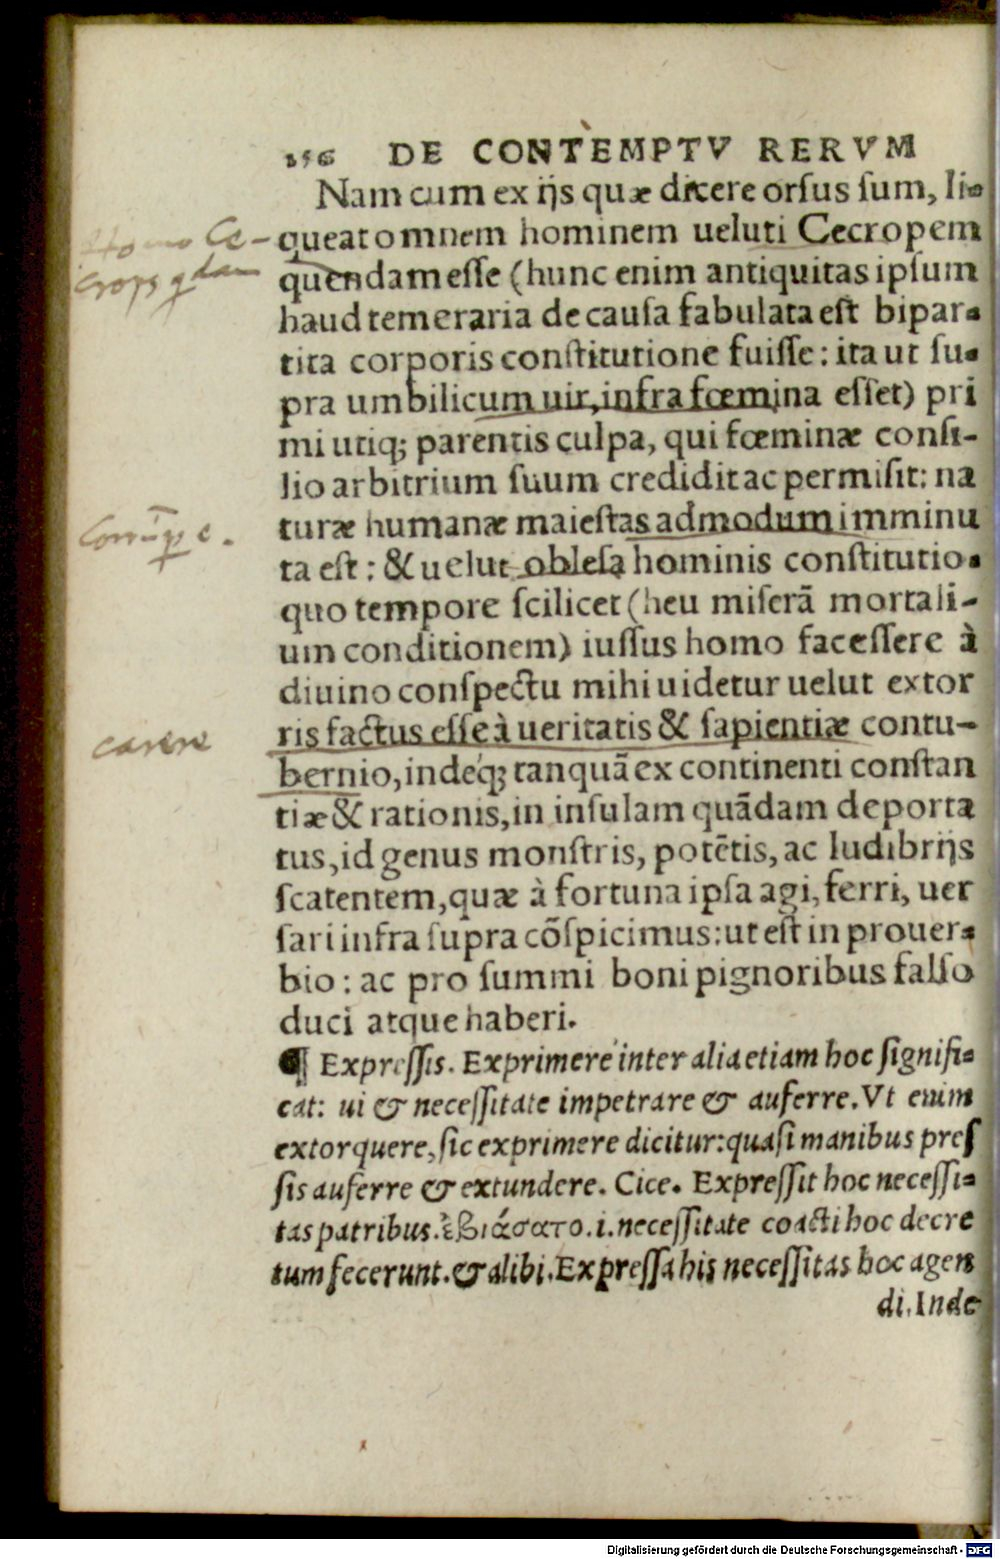 256 DE CONTEMPTV RERVM
Nam cum ex ijs quæ dicere orſus ſum, li-
queat omnem hominem ueluti Cecropem
quendam eſſe (hunc enim antiquitas ipſum
haud temeraria de cauſa fabulata eſt bipar-
tita corporis conſtitutione fuiſſe: ita ut ſu-
pra umbilicum uir, infra fœmina eſſet) pri
mi utiq; parentis culpa, qui fœminæ conſi-
lio arbitrium ſuum credidit ac permiſit: na
turæ humanæ maieſtas admodum imminu
ta eſt: & uelut obleſa hominis conſtitutio.
quo tempore ſcilicet (heu miſerā mortali-
um conditionem) iuſſus homo faceſſere à
diuino conſpectu mihi uidetur uelut extor
ris factus eſſe à ueritatis & ſapientiæ contu-
bernio, indeq́; tanquā ex continenti conſtan
tiæ & rationis, in inſulam quādam deporta
tus, id genus monſtris, potētis, ac ludibrijs
ſcatentem, quæ à fortuna ipſa agi, ferri, uer
ſari infra ſupra cōſpicimus: ut eſt in prouer-
bio: ac pro ſummi boni pignoribus falſo
duci atque haberi.
¶ Expreſſis. Exprimere inter alia etiam hoc ſignifi-
cat: ui & neceſſitate impetrare & auferre. Vt enim
extorquere, ſic exprimere dicitur: quaſi manibus preſ
ſis auferre & extundere. Cice. Expreſſit hoc neceſſi-
tas patribus. ἐβιάσατο. i. neceſſitate coacti hoc decre
tum fecerunt. & alibi. Expreſſa his neceſſitas hoc agen
di. Inde
Homo Ce-
crops qdam
carere
Digitalisierung gefördert durch die Deutsche Forschungsgemeinschaft - DFG